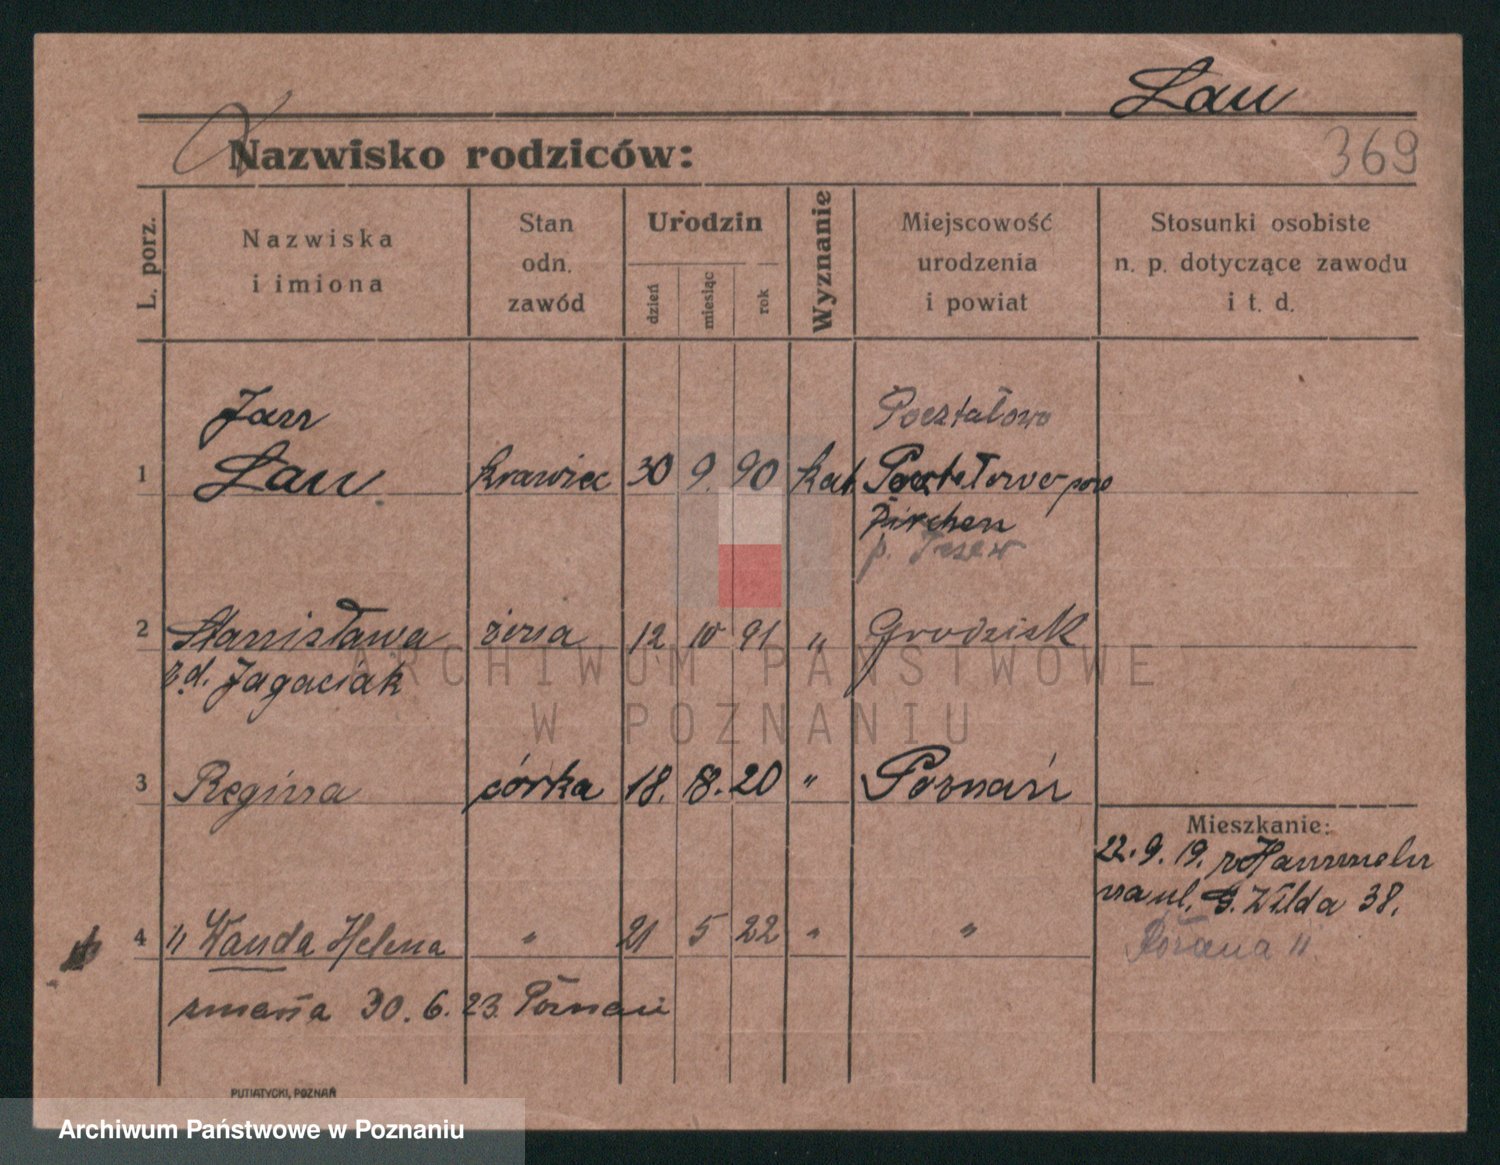 Lau
Nazwisko rodziców:
369
L. porz.
Nazwiska
i imiona
Stan
odn.
zawód
Urodzin
dzień
miesiąc
rok
Wyznanie
Miejscowość
urodzenia
i powiat
Stosunki osobiste
n. p. dotyczące zawodu
i t. d.
Jan
Pocztałowo
1 Lau krawiec 30 9. 90 kat
p. Tczew
2 Stanisława żona 12 10 91 " Grodzisk
z d. Jagaciak
ARCHIWUM PAŃSTWOWE
W POZNANIU
3 Regina córka 18. 8. 20 " Poznań
Mieszkanie:
22. 9. 19. z Hammeln
na ul. G. Wilda 38.
4 " Wanda Helena " 21 5 22 " "
Różana 11.
zmarła 30. 6. 23. Poznań
PUTIATYCKI, POZNAŃ
Archiwum Państwowe w Poznaniu